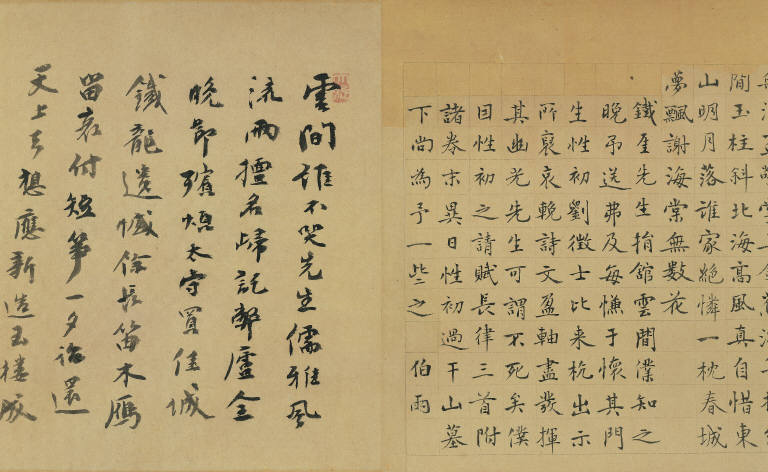 間玉柱斜北海高風真自惜東
山明月落誰家絕憐一枕春城
夢飄謝海棠無數花
鐵厓先生捐舘雲間僕知之
晚弔送弗及每慊于懷其門
生性初劉徵士比来杭出示
所裒哀輓詩文盈軸盡發揮
其幽光先生可謂不死矣僕
因性初之請賦長律三首附
諸卷末異日性初過干山墓
下尚為予一些之 伯雨
雲间誰不哭先生儒雅風
流兩擅名歸託弊廬全
晚節殯煩太守買佳城
鐵龍遺憾徐長笛木鴈
留哀付短箏一夕詔還
天上去想應新造玉樓成